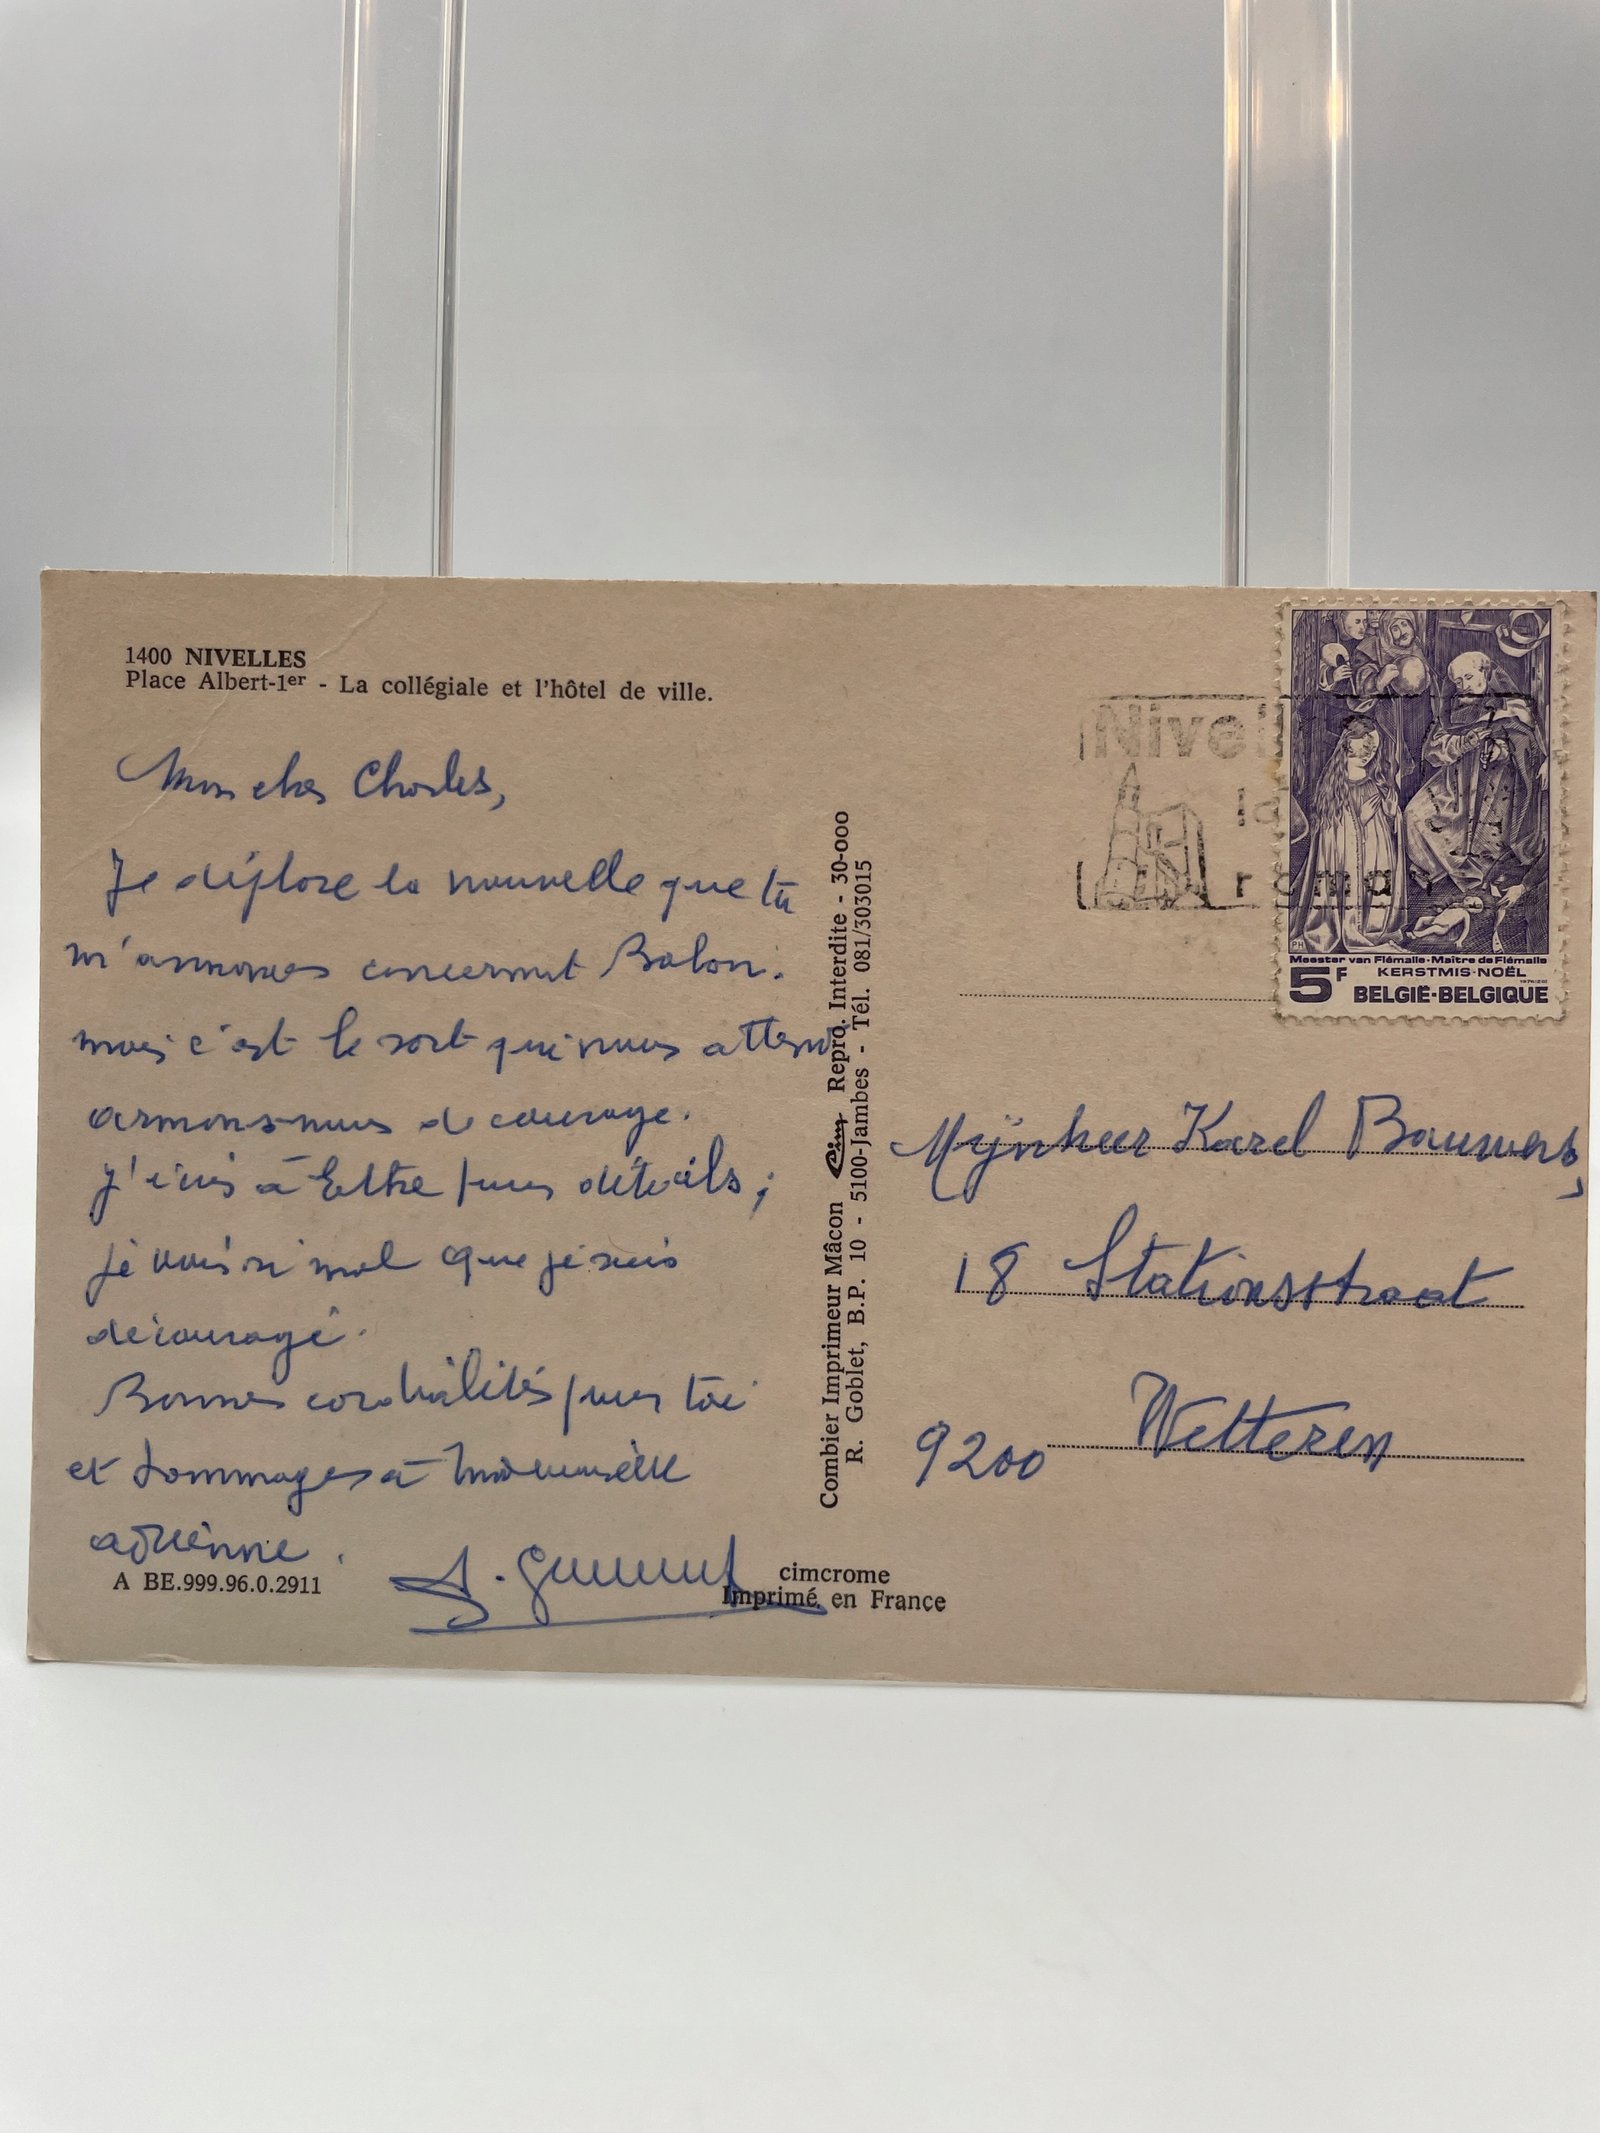 1400 NIVELLES
Place Albert-1er - La collégiale et l'hôtel de ville.
Mon cher Charles,
Je déplore la nouvelle que tu
m'annonces concernant Balon.
mais c'est le sort qui nous attend
armons-nous de courage.
J'écris à Ethe pour détails;
je vois si mal que je suis
découragé.
Bonnes cordialités pour toi
et hommages à Mademoiselle
adrienne.
A BE.999.96.0.2911
cimcrome
Imprimé en France
Combier Imprimeur Mâcon Cim Repro. Interdite - 30-000
R. Goblet, B.P. 10 - 5100-Jambes - Tél. 081/303015
Nivel
la
roman
PH
Meester van Flémalle-Maître de Flémalle
5F KERSTMIS-NOËL
BELGIË-BELGIQUE
Mijnheer Karel Bauwens,
18 Stationsstraat
9200 Wetteren